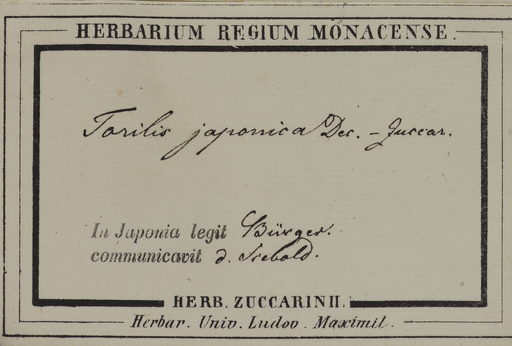 HERBARIUM REGIUM MONACENSE.
Torilis japonica Dec. – Zuccar.
In Japonia legit Bürger.
communicavit d. Siebold.
HERB. ZUCCARINII.
Herbar. Univ. Ludov. Maximil.